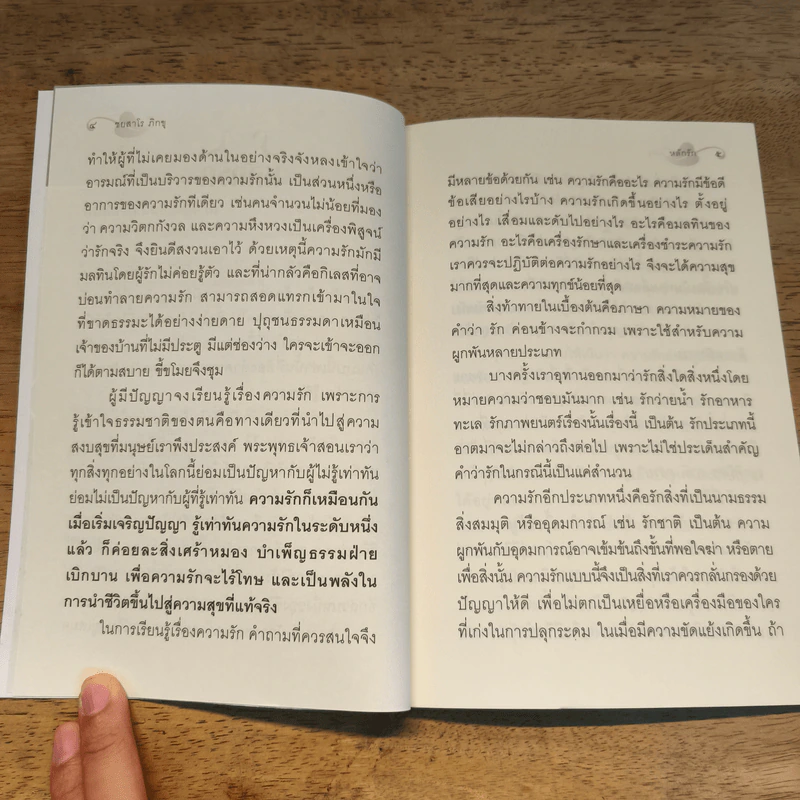 ๔ ชยสาโร ภิกขุ
ทำให้ผู้ที่ไม่เคยมองด้านในอย่างจริงจังหลงเข้าใจว่า
อารมณ์ที่เป็นบริวารของความรักนั้น เป็นส่วนหนึ่งหรือ
อาการของความรักทีเดียว เช่นคนจำนวนไม่น้อยที่มอง
ว่า ความวิตกกังวล และความหึงหวงเป็นเครื่องพิสูจน์
ว่ารักจริง จึงยินดีสงวนเอาไว้ ด้วยเหตุนี้ความรักมักมี
มลทินโดยผู้รักไม่ค่อยรู้ตัว และที่น่ากลัวคือกิเลสที่อาจ
บ่อนทำลายความรัก สามารถสอดแทรกเข้ามาในใจ
ที่ขาดธรรมะได้อย่างง่ายดาย ปุถุชนธรรมดาเหมือน
เจ้าของบ้านที่ไม่มีประตู มีแต่ช่องว่าง ใครจะเข้าจะออก
ก็ได้ตามสบาย ขี้ขโมยจึงชุม
ผู้มีปัญญาจงเรียนรู้เรื่องความรัก เพราะการ
รู้เข้าใจธรรมชาติของตนคือทางเดียวที่นำไปสู่ความ
สงบสุขที่มนุษย์เราพึงประสงค์ พระพุทธเจ้าสอนเราว่า
ทุกสิ่งทุกอย่างในโลกนี้ย่อมเป็นปัญหากับผู้ไม่รู้เท่าทัน
ย่อมไม่เป็นปัญหากับผู้ที่รู้เท่าทัน ความรักก็เหมือนกัน
เมื่อเริ่มเจริญปัญญา รู้เท่าทันความรักในระดับหนึ่ง
แล้ว ก็ค่อยละสิ่งเศร้าหมอง บำเพ็ญธรรมฝ่าย
เบิกบาน เพื่อความรักจะไร้โทษ และเป็นพลังใน
การนำชีวิตขึ้นไปสู่ความสุขที่แท้จริง
ในการเรียนรู้เรื่องความรัก คำถามที่ควรสนใจจึง
หลักรัก ๕
มีหลายข้อด้วยกัน เช่น ความรักคืออะไร ความรักมีข้อดี
ข้อเสียอย่างไรบ้าง ความรักเกิดขึ้นอย่างไร ตั้งอยู่
อย่างไร เสื่อมและดับไปอย่างไร อะไรคือมลทินของ
ความรัก อะไรคือเครื่องรักษาและเครื่องชำระความรัก
เราควรจะปฏิบัติต่อความรักอย่างไร จึงจะได้ความสุข
มากที่สุดและความทุกข์น้อยที่สุด
สิ่งท้าทายในเบื้องต้นคือภาษา ความหมายของ
คำว่า รัก ค่อนข้างจะกำกวม เพราะใช้สำหรับความ
ผูกพันหลายประเภท
บางครั้งเราอุทานออกมาว่ารักสิ่งใดสิ่งหนึ่งโดย
หมายความว่าชอบมันมาก เช่น รักว่ายน้ำ รักอาหาร
ทะเล รักภาพยนตร์เรื่องนั้นเรื่องนี้ เป็นต้น รักประเภทนี้
อาตมาจะไม่กล่าวถึงต่อไป เพราะไม่ใช่ประเด็นสำคัญ
คำว่ารักในกรณีนี้เป็นแค่สำนวน
ความรักอีกประเภทหนึ่งคือรักสิ่งที่เป็นนามธรรม
สิ่งสมมุติ หรืออุดมการณ์ เช่น รักชาติ เป็นต้น ความ
ผูกพันกับอุดมการณ์อาจเข้มข้นถึงขั้นที่พอใจฆ่า หรือตาย
เพื่อสิ่งนั้น ความรักแบบนี้จึงเป็นสิ่งที่เราควรกลั่นกรองด้วย
ปัญญาให้ดี เพื่อไม่ตกเป็นเหยื่อหรือเครื่องมือของใคร
ที่เก่งในการปลุกระดม ในเมื่อมีความขัดแย้งเกิดขึ้น ถ้า